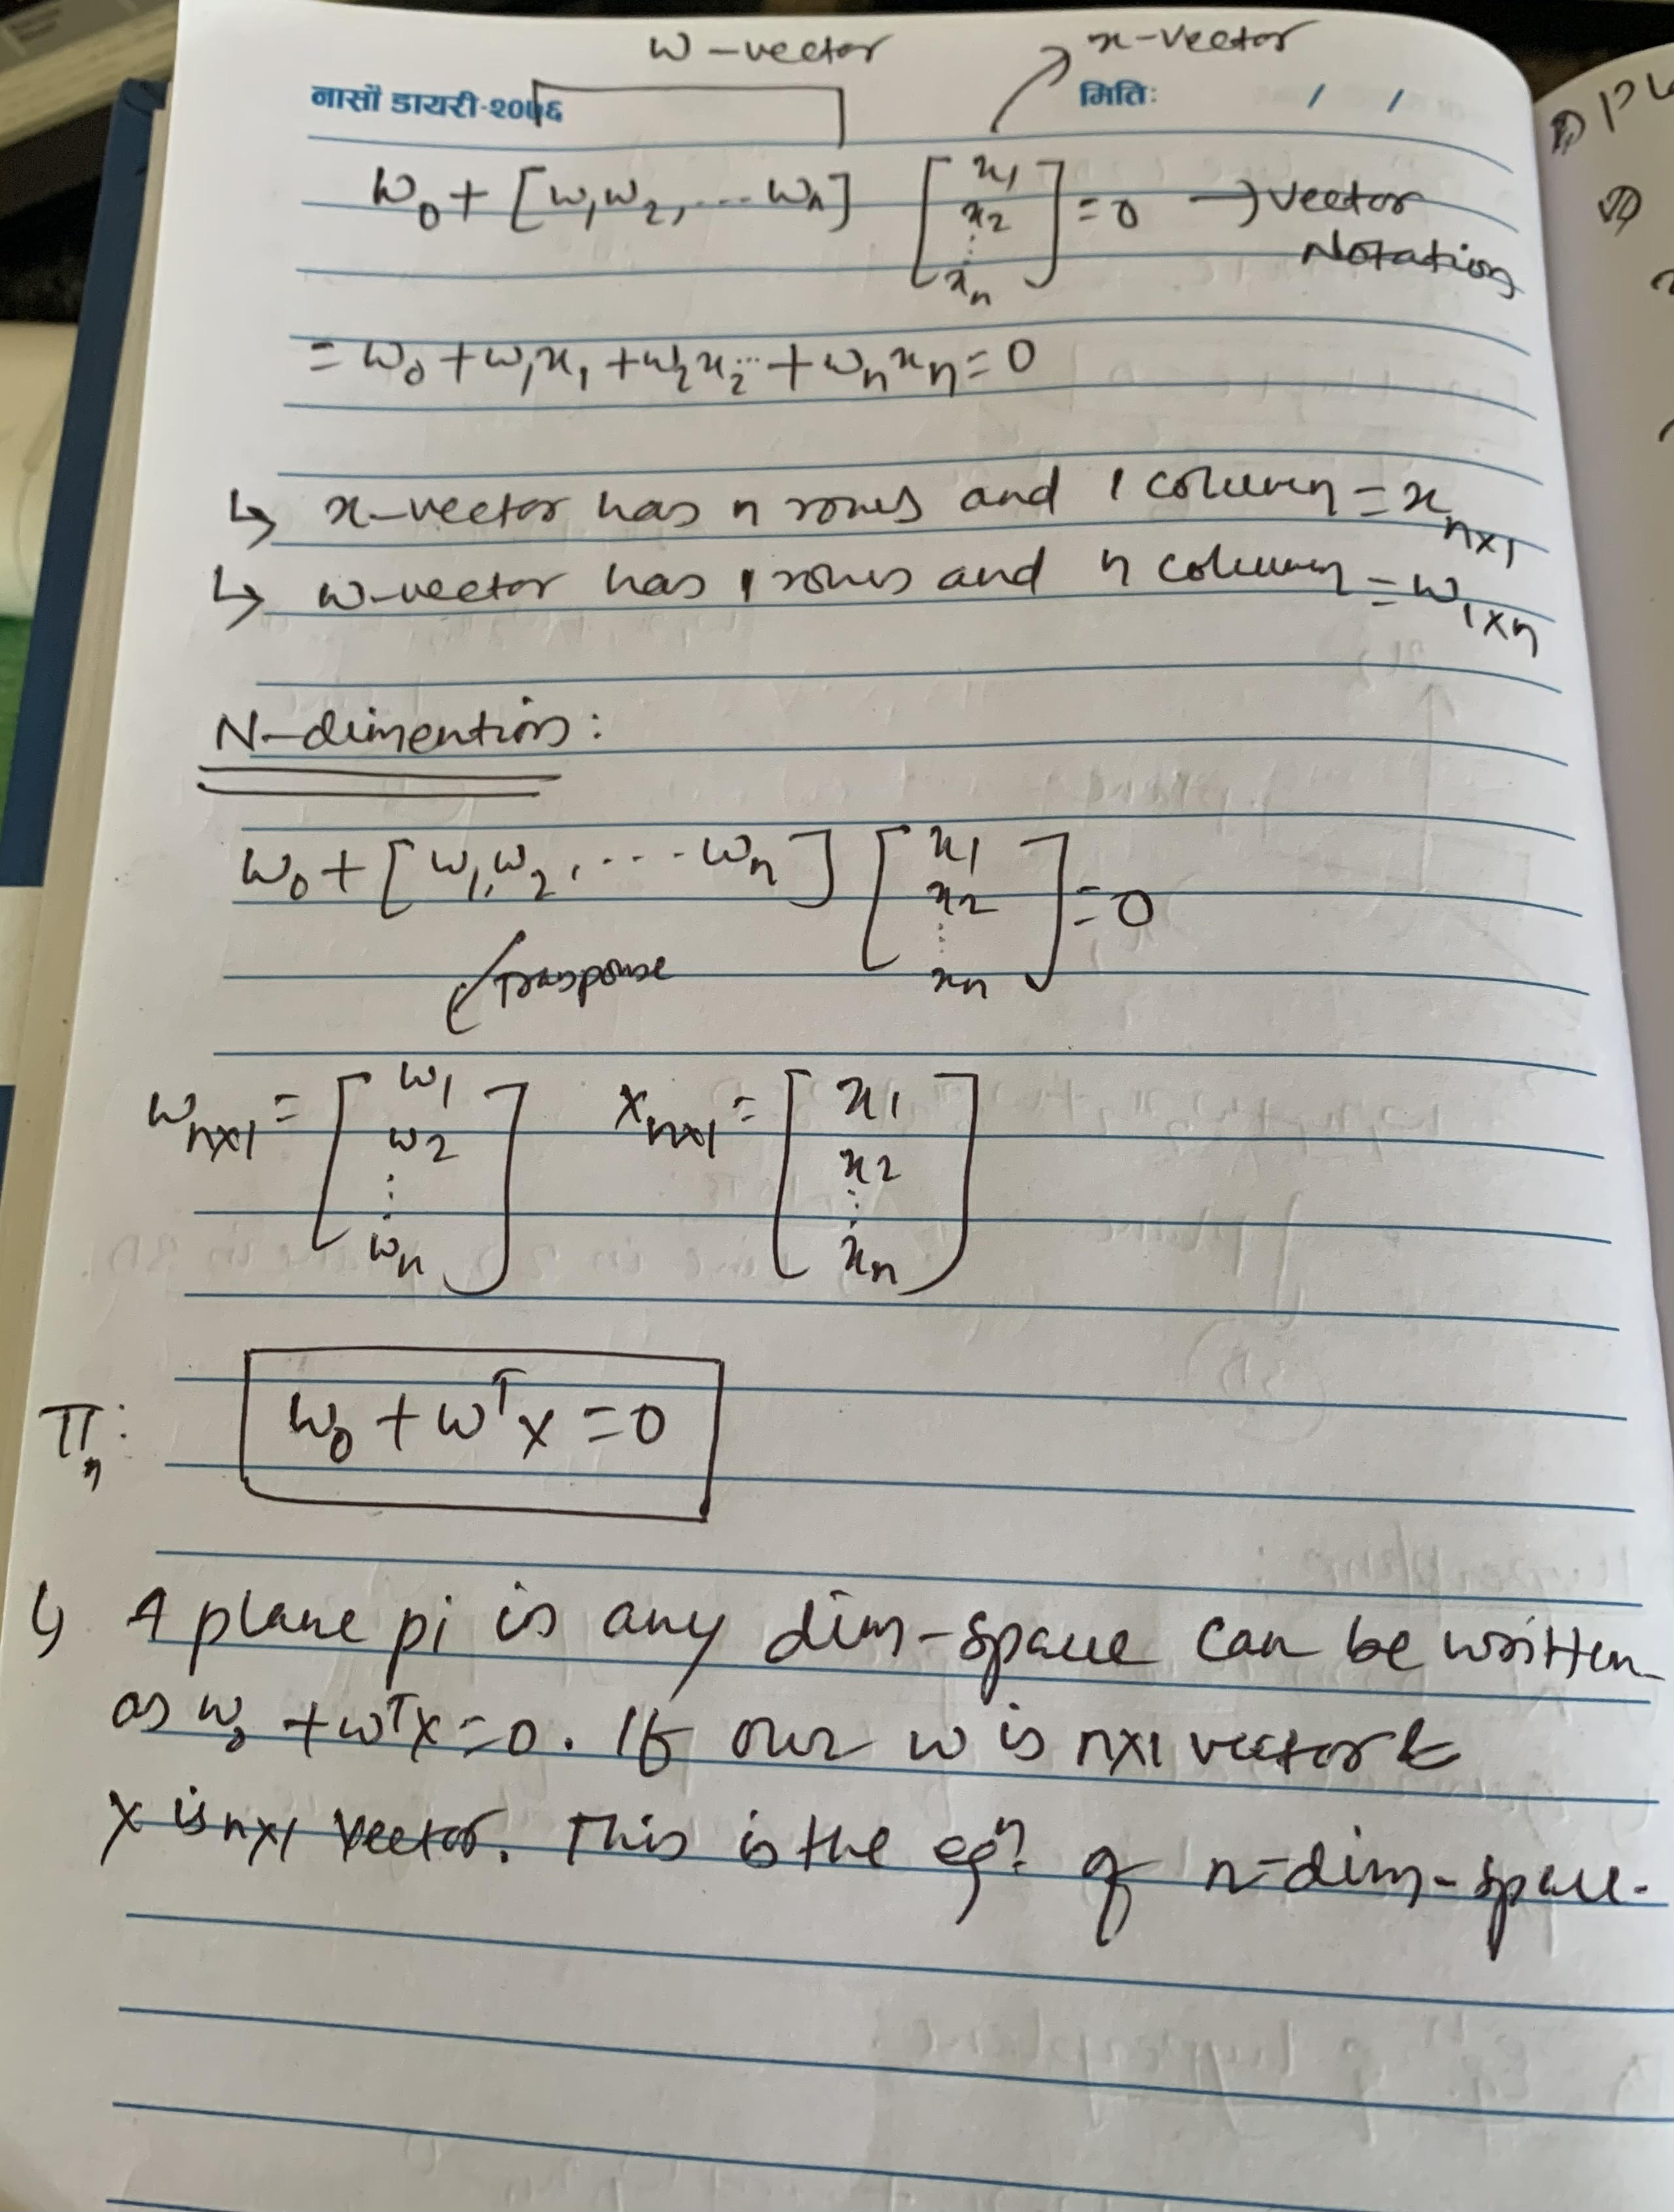 w-vector x-vector
नासाैं डायरी-२०७६ मितिः / /
w₀ + [w₁w₂,...wₙ] [x₁ x₂ ⋮ xₙ] = 0 → vector
Notation
= w₀ + w₁x₁ + w₂x₂... + wₙxₙ = 0
↳ x-vector has n rows and 1 column = xₙₓ₁
↳ w-vector has 1 rows and n column = w₁ₓₙ
N-dimention:
w₀ + [w₁,w₂,....wₙ] [x₁ x₂ ⋮ xₙ] = 0
Transpose
wₙₓ₁ = [w₁ w₂ ⋮ wₙ] xₙₓ₁ = [x₁ x₂ ⋮ xₙ]
πₙ: w₀ + wᵀx = 0
↳ A plane pi is any dim-space can be written
as w₀ + wᵀx = 0. If our w is nx1 vector &
x is nx1 vector. This is the eqⁿ of n-dim-space.